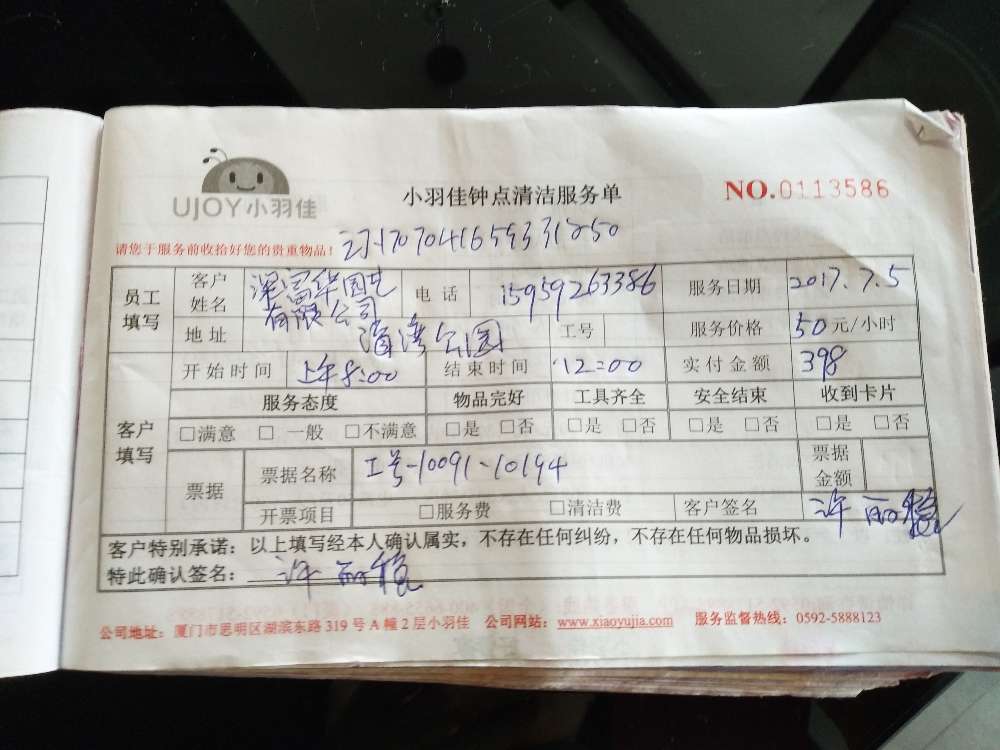 UJOY小羽佳
小羽佳钟点清洁服务单
NO.0113586
请您于服务前收拾好您的贵重物品！
员工填写 客户姓名 深富华园艺有限公司 电话 15959263386 服务日期 2017.7.5
地址 湾公园 工号 服务价格 50元/小时
开始时间 上午8:00 结束时间 12:00 实付金额 398
客户填写 服务态度 物品完好 工具齐全 安全结束 收到卡片
□满意 □一般 □不满意 □是 □否 □是 □否 □是 □否 □是 □否
票据 票据名称 工号-10091-10194 票据金额
开票项目 □服务费 □清洁费 客户签名 许丽
客户特别承诺：以上填写经本人确认属实，不存在任何纠纷，不存在任何物品损坏。
特此确认签名：许丽
公司地址：厦门市思明区湖滨东路319号A幢2层小羽佳 公司网站：www.xiaoyujia.com 服务监督热线：0592-5888123